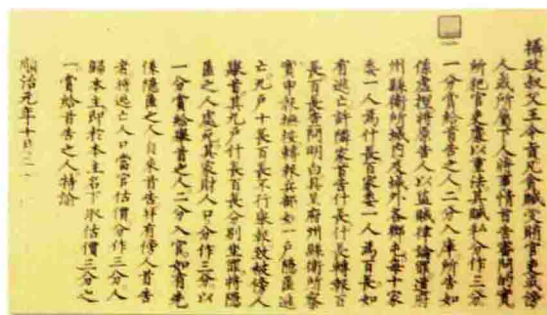 攝政叔父王令旨凡貪贓受賄官吏或傍
人或所屬下人將事情首告審問的實
所犯官吏處以重法其贓私分作三分
一分賞給首告之人二分入庫所告如
係虛捏將原告人以盜賊律論罪這府
州縣衛所城内及城外各鄉屯每十家
委一人為什長百家委一人為百長如
有逃亡許隣家首告什長什長轉報百
長百長查問明白具呈府州縣衛所察
實申報巡按轉報兵部如一戶隱匿逃
亡九戶十長百長不行舉報致被傍人
舉首其九戶什長百長分別坐罪將隱
匿之人處死其家財人口分作三分以
一分賞給舉首之人二分入官如有先
係隱匿之人自來首告并有傍人首告
者將逃亡人口當官估價分作三分人
歸本主即於本主名下求估價三分之
一賞給首告之人特諭
順治元年十月二